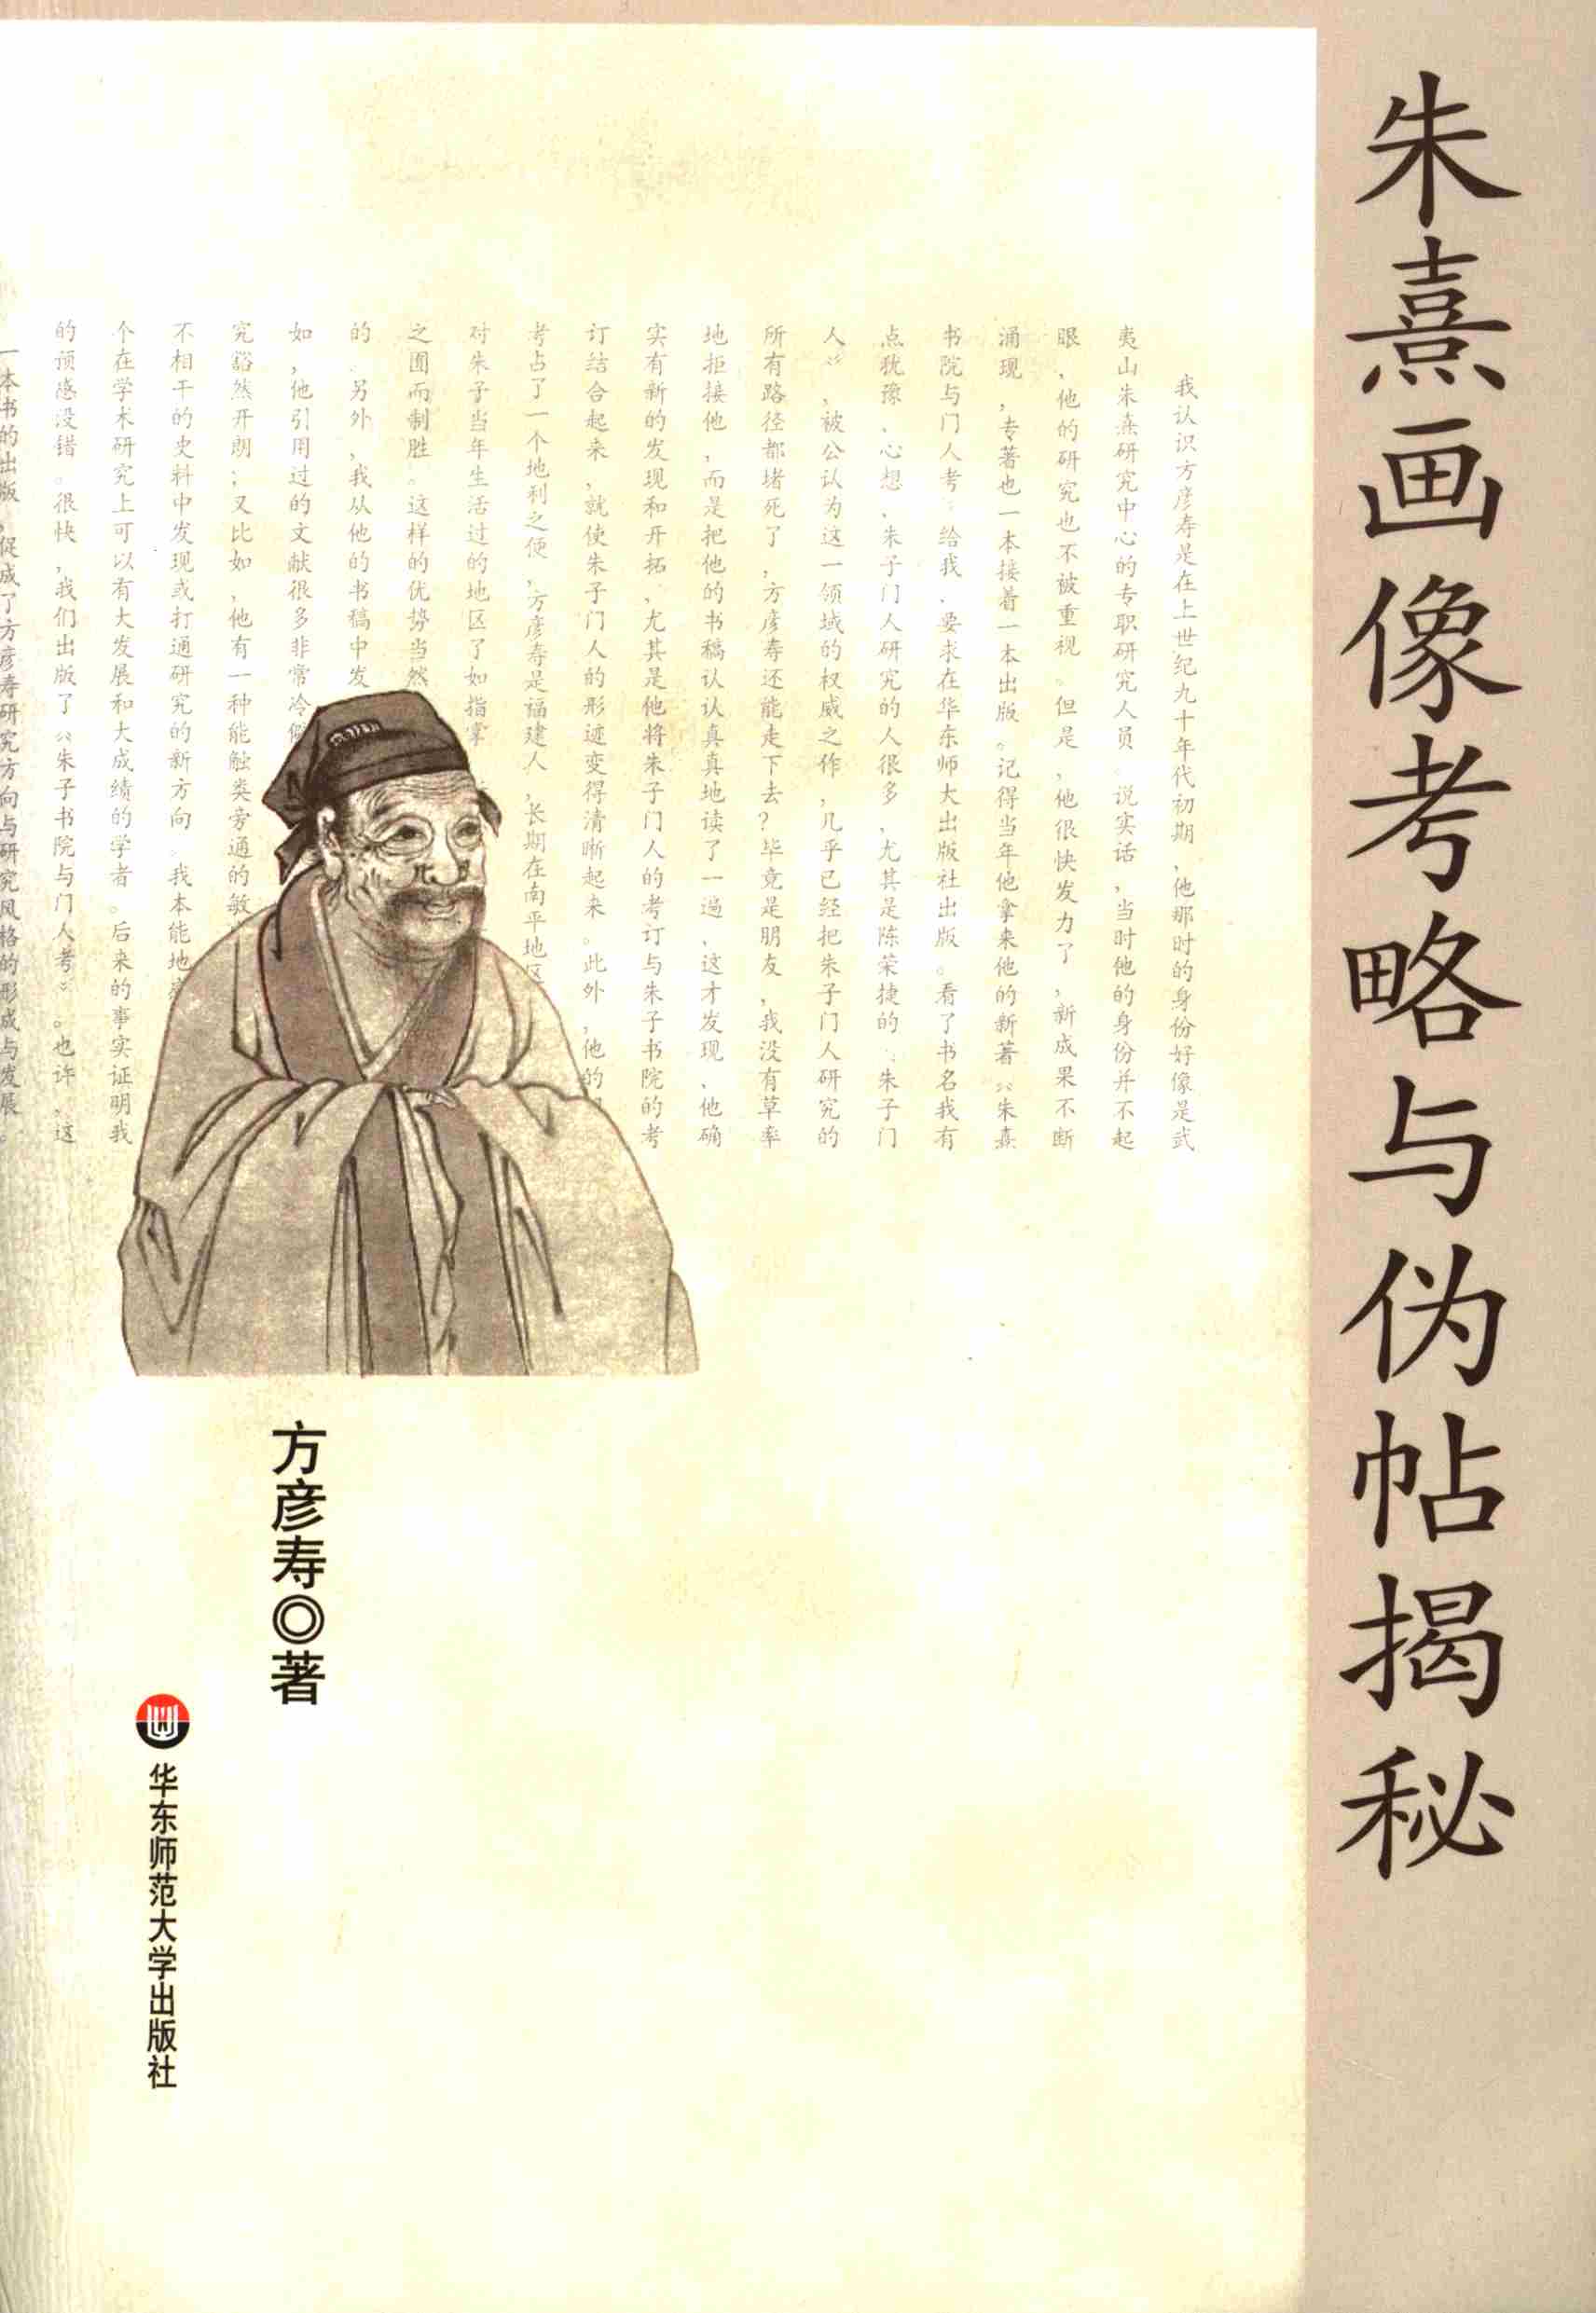 朱熹画像考略与伪帖揭秘
我认识方彦寿是在上世纪九十年代初期，他那时的身份好像是武
夷山朱熹研究中心的专职研究人员。说实话，当时他的身份并不起
眼，他的研究也不被重视。但是，他很快发力了，新成果不断
涌现，专著也一本接着一本出版。记得当年他拿来他的新著《朱熹
书院与门人考》给我，要求在华东师大出版社出版。看了书名我有
点犹豫，心想，朱子门人研究的人很多，尤其是陈荣捷的《朱子门
人》，被公认为这一领域的权威之作，几乎已经把朱子门人研究的
所有路径都堵死了，方彦寿还能走下去？毕竟是朋友，我没有草率
地拒接他，而是把他的书稿认认真真地读了一遍，这才发现，他确
实有新的发现和开拓，尤其是他将朱子门人的考订与朱子书院的考
订结合起来，就使朱子门人的形迹变得清晰起来。此外，他的
考占了一个地利之便，方彦寿是福建人，长期在南平地区
对朱子当年生活过的地区了如指掌
之围而制胜。这样的优势当然
的。另外，我从他的书稿中发
如，他引用过的文献很多非常冷僻
究豁然开朗；又比如，他有一种能触类旁通的敏
不相干的史料中发现或打通研究的新方向。我本能地
个在学术研究上可以有大发展和大成绩的学者。后来的事实证明我
的预感没错。很快，我们出版了《朱子书院与门人考》。也许，这
一本书的出版，促成了方彦寿研究方向与研究风格的形成与发展。
方彦寿◎著
华东师范大学出版社